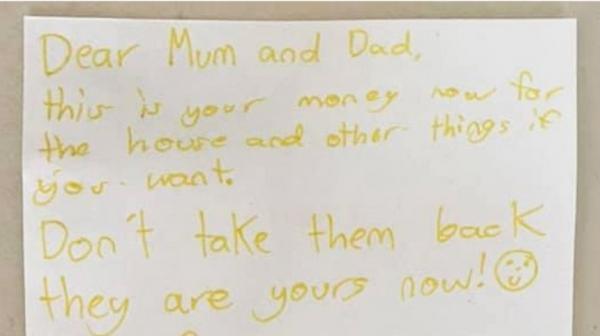 Dear Mum and Dad,
this is your money now for
the house and other things if
you want.
Don't take them back
they are yours now!